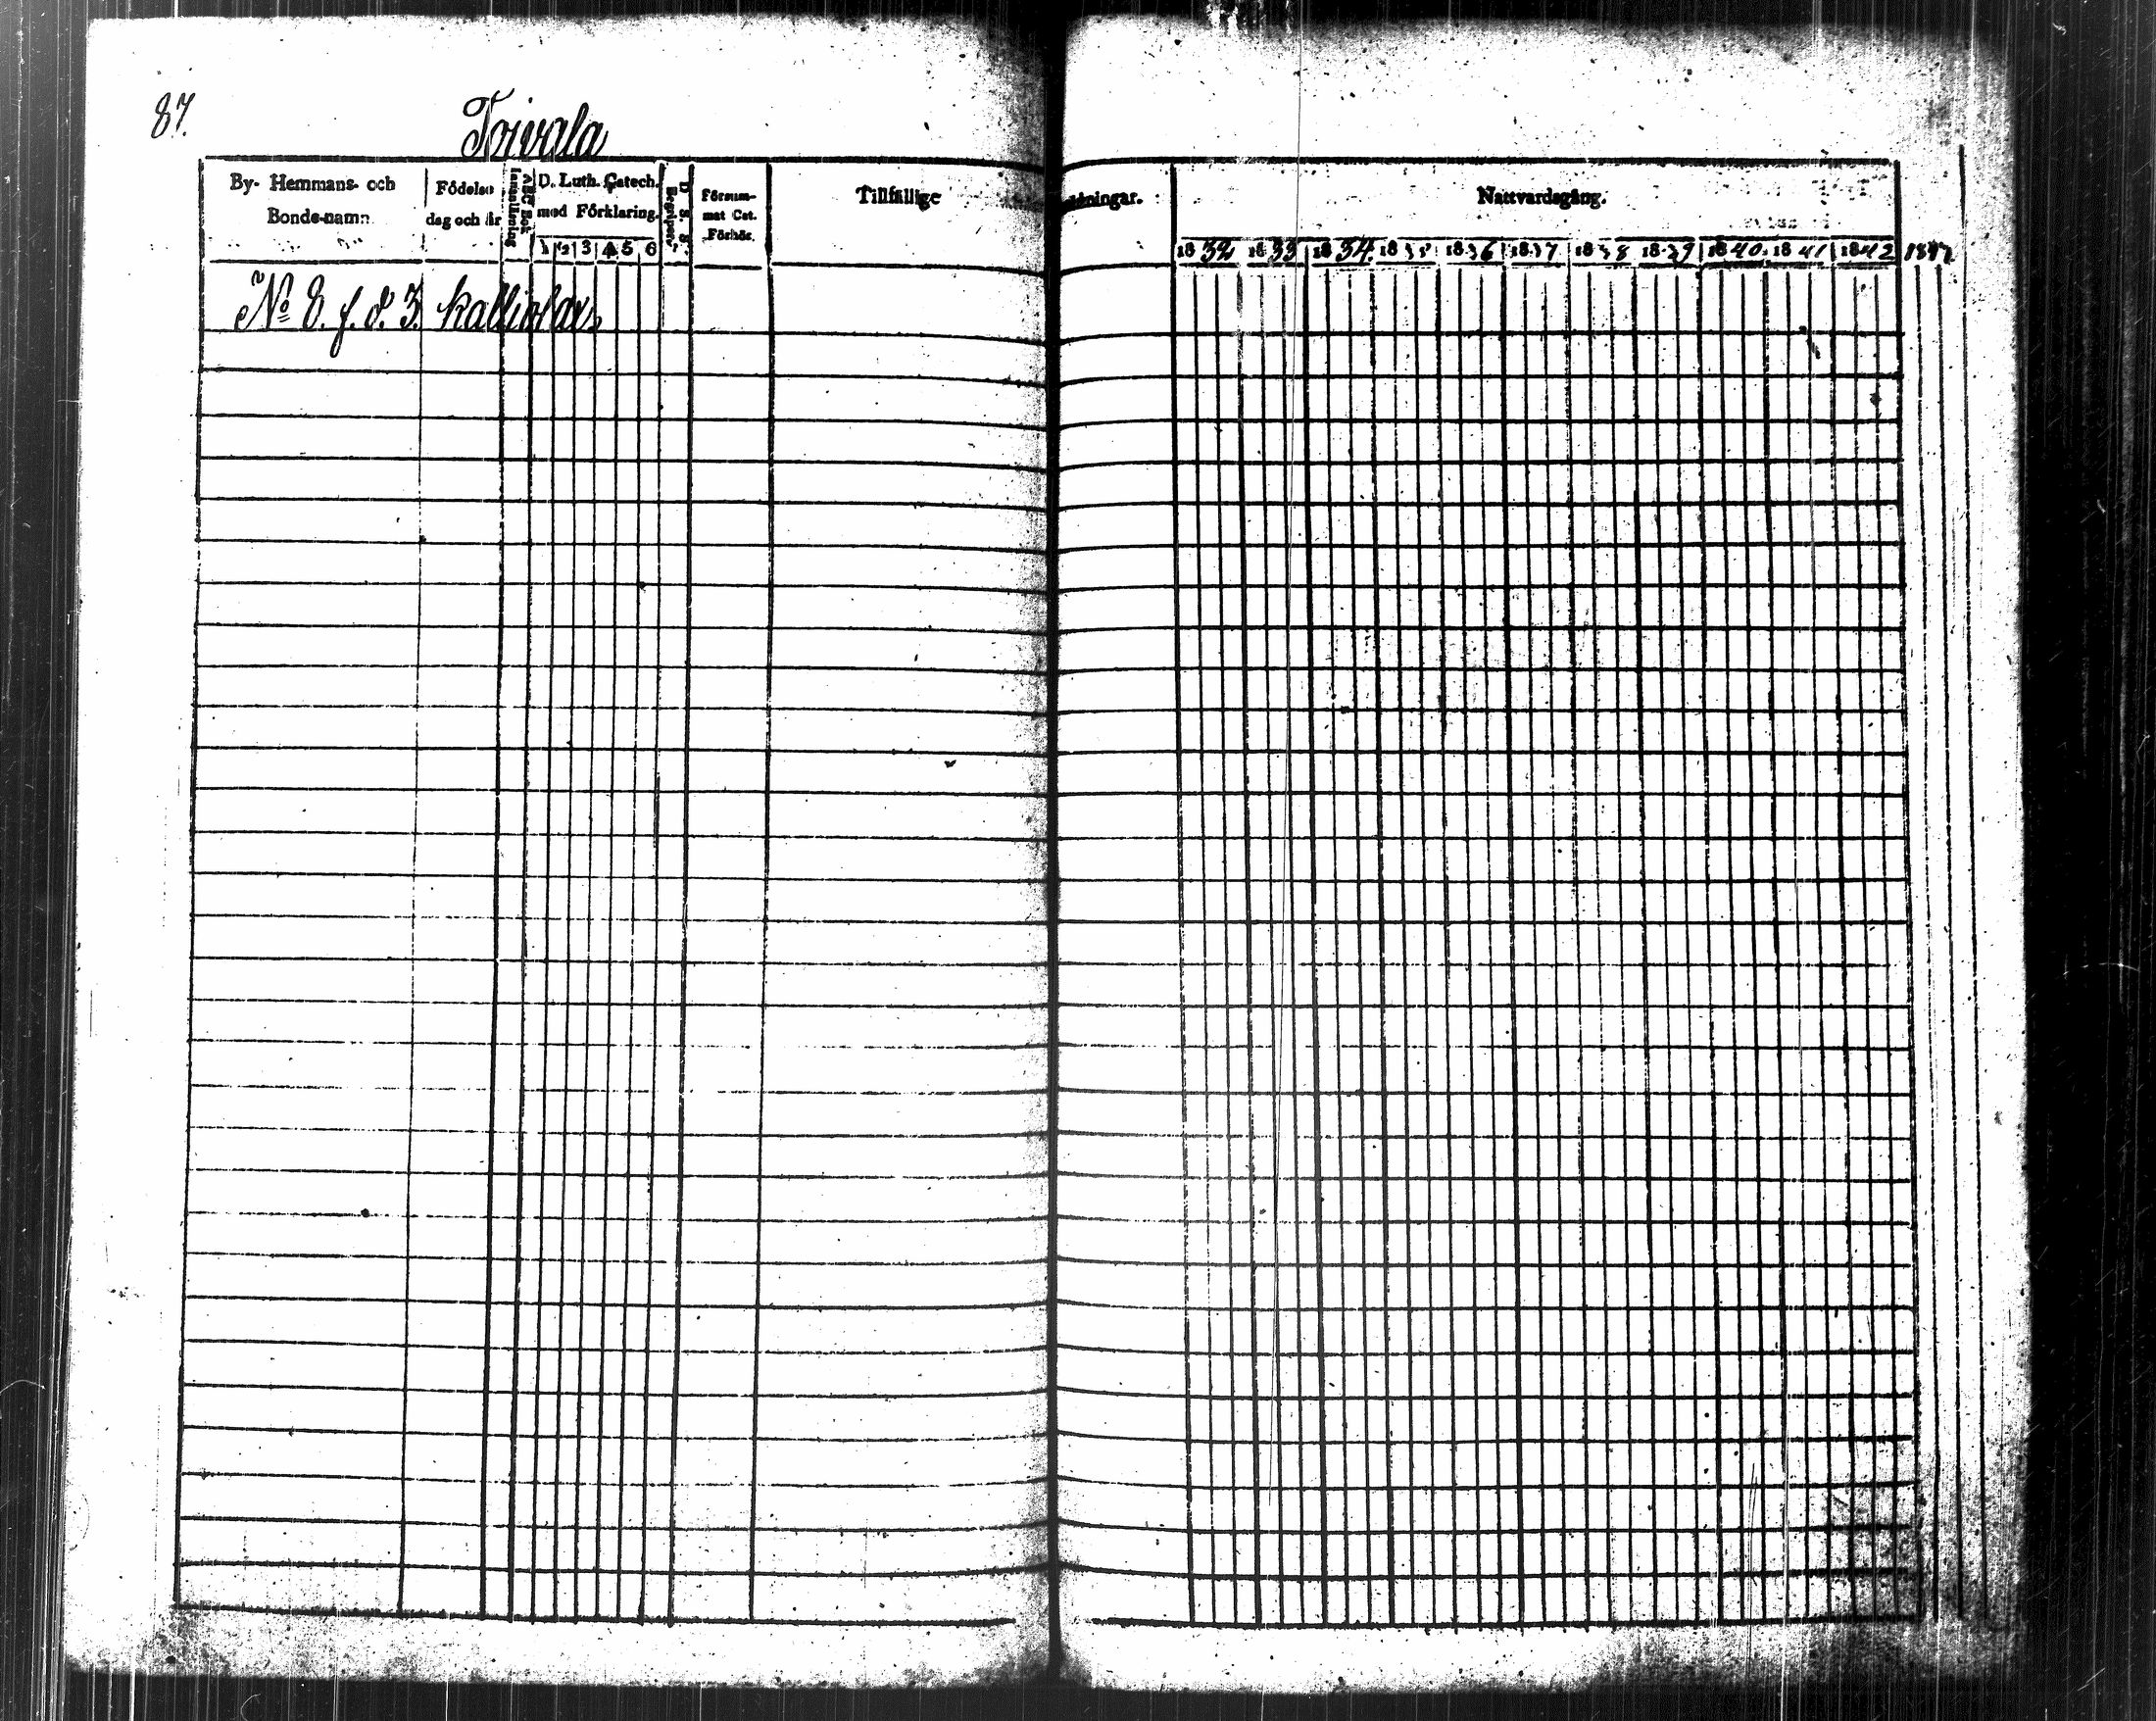 87.
Toivala
By- Hemmans- och
Bonde-namn.
Födelse
dag och år
ABC Bok
Innanläsning
D. Luth. Catech.
med Förklaring.
1 2 3 4 5 6
D. S. S.
Begripen
Försum-
mat Cat.
Förhör.
Tillfällige
Nattvardsgång.
1832 1833 1834 1835 1836 1837 1838 1839 1840. 1841 1842
No 8. f. d. 3. Kalliolax